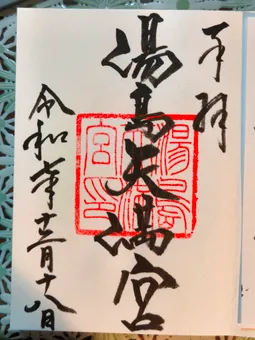 奉拝
湯島天満宮
令和年十二月十八日